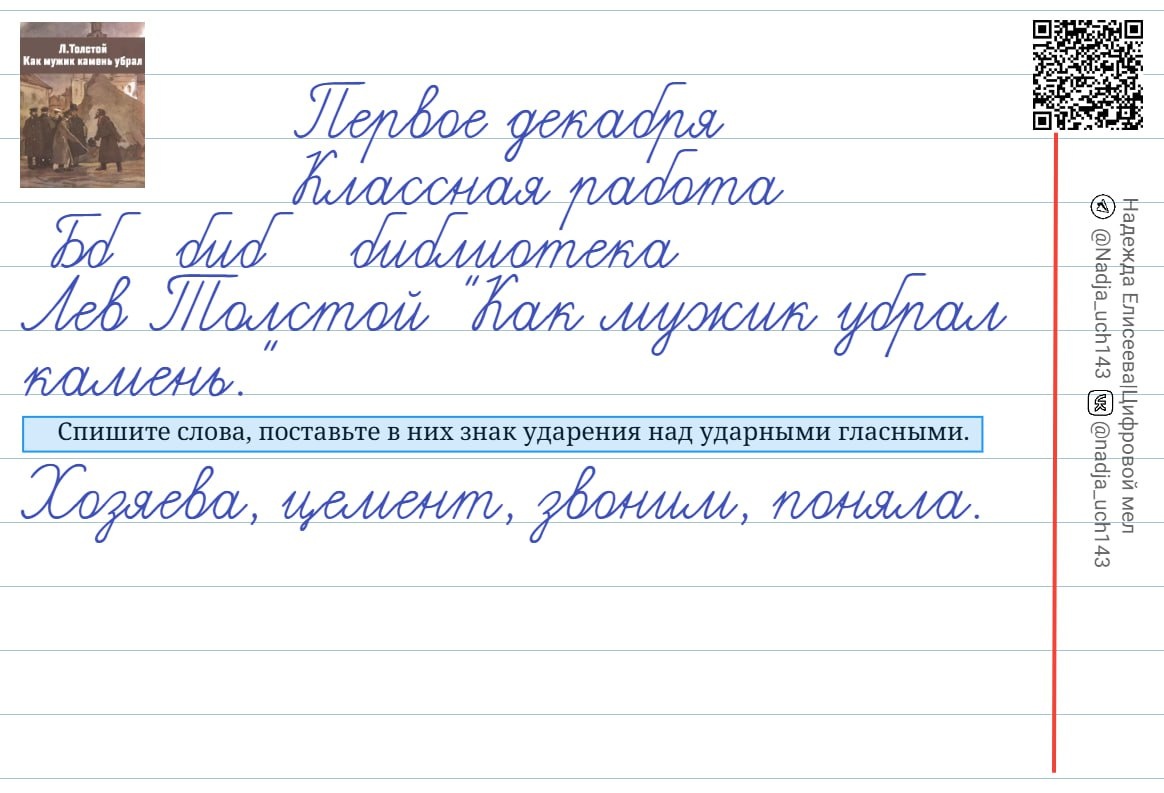 Л.Толстой
Как мужик камень убрал
Первое декабря
Классная работа
Бб биб библиотека
Лев Толстой "Как мужик убрал
камень."
Спишите слова, поставьте в них знак ударения над ударными гласными.
Хозяева, цемент, звоним, поняла.
Надежда Елисеева|Цифровой мел
@Nadja_uch143 @nadja_uch143